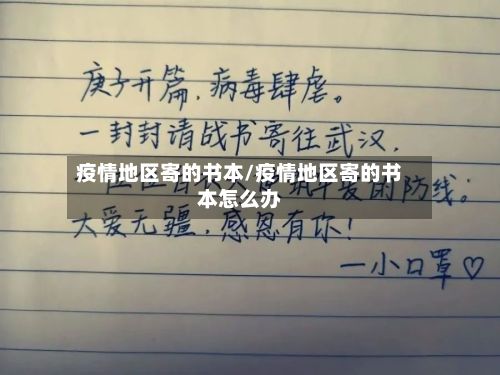 庚子开篇，病毒肆虐。
一封封请战书寄往武汉，
疫情地区寄的书本/疫情地区寄的书
本怎么办
的防线；
大爱无疆，感恩有你！
一小口罩♡